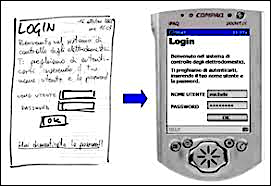 LOGIN
Benvenuto nel sistema di
controllo degli elettrodomestici.
Ti preghiamo di autenti-
carti inserendo il tuo
nome utente e la password
NOME UTENTE
PASSWORD
OK
Hai dimenticato la password?
COMPAQ
iPAQ
Login
Benvenuto nel sistema di
controllo degli elettrodomestici.
Ti preghiamo di autenticarti,
inserendo il tuo nome utente
e la password.
NOME UTENTE michele
PASSWORD ********
OK